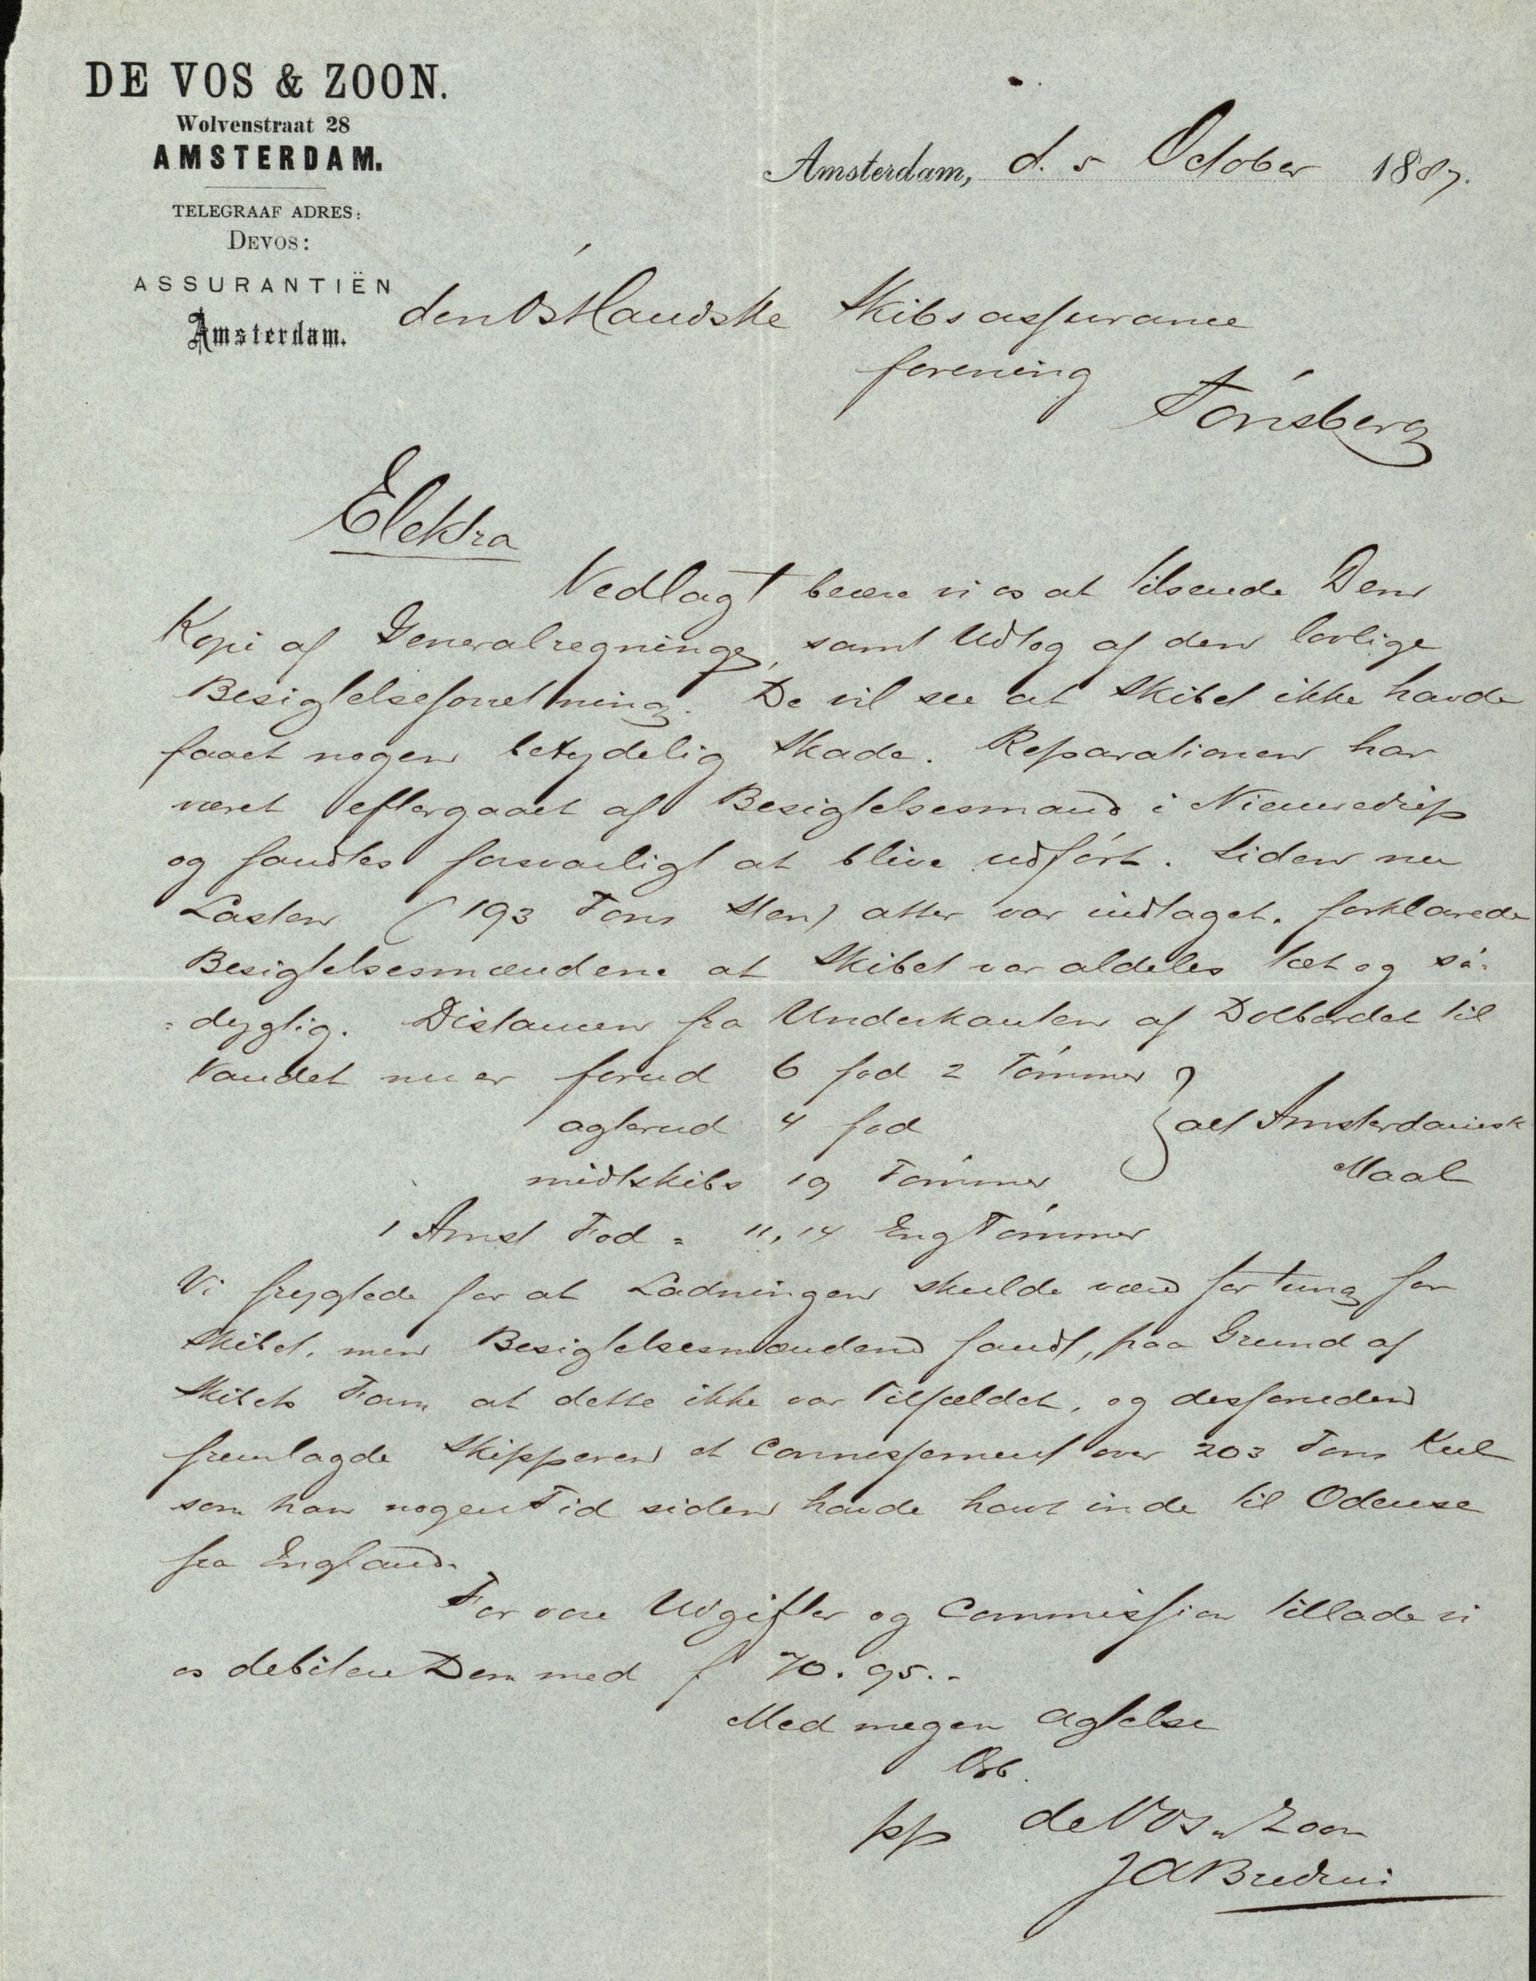 DE VOS & ZOON.
Wolvenstraat 28
AMSTERDAM.
TELEGRAAF ADRES:
DEVOS:
ASSURANTIËN
Amsterdam.
Amsterdam, d. 5 October 1887.
den Östlandske Skibsassurance
forening
Tönsberg
Elektra
Vedlagt beære vi os at tilsende Dem
Kopi af Generalregninge, samt Udtog af den lovlige
Besigtelsesforretning. De vil see at Skibet ikke havde
faaet nogen betydelig Skade. Reparationen har
været eftergaaet af Besigtelsesmand i Nieuwediep
og fandtes forsvarligt at blive udfört. Siden nu
Lasten (193 Tons Sten) atter var indtaget. forklarede
Besigtelsesmændene at Skibet var aldeles tæt og sö-
=dygtig. Distancen fra Underkanten af Dolbordet til
Vandet nu er forud 6 fod 2 Tömmer
agterud 4 fod } alt Amsterdamsk
midtskibs 19 Tömmer Maal
1 Amst Fod = 11,14 Eng Tömmer
Vi frygtede for at Ladningen skulde være for tung for
Skibet. men Besigtelsesmændene fandt, paa Grund af
Skibets Form at dette ikke var Tilfældet, og desforuden
fremlagde Skipperen et Connossement over 203 Tons Kul
som han nogen Tid siden havde havt inde til Odense
fra England.
For vore Udgifter og Commission tillade vi
os debitere Dem med f 70.95.-
Med megen Agtelse
Ærb.
pp de Vos & Zoon